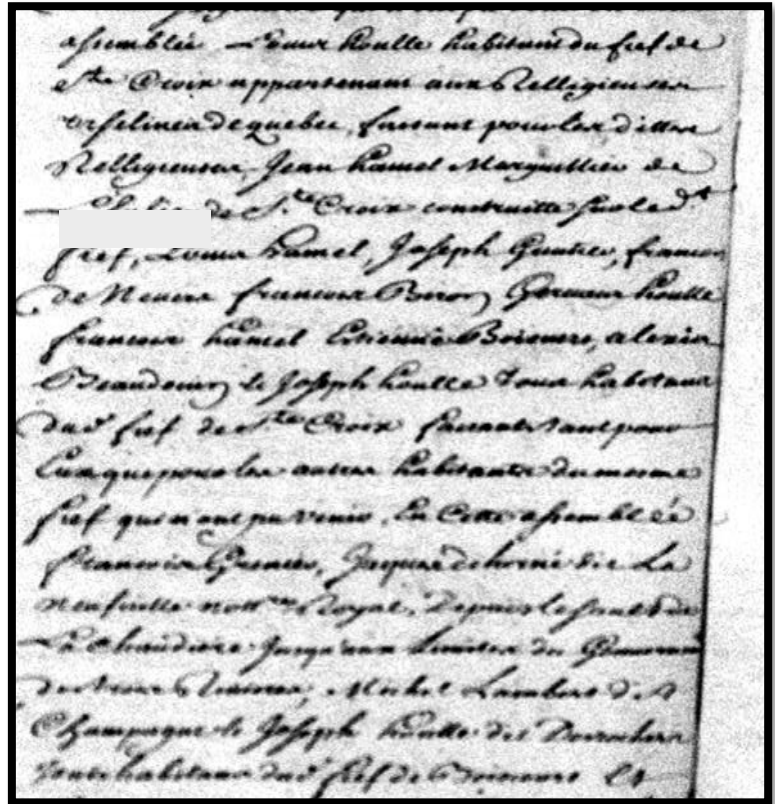 assemblée Louis houlle habitant du fief de
Ste Croix appartenant aux Relligieuses
urselines de quebec, faisant pour les dittes
Relligieuses, Jean hamel Marguillier de
de Ste Croix construitte sur led.t
fief, Louis hamel, Joseph Gautier, francois
de Nevers francois Biron, Germain houlle
francois hamel Estienne Boisvert, alexis
Beaudouin, & Joseph houlle tous habitans
dud fief de Ste Croix faisants tant pour
Eux que pour les autres habitants du mesme
fief qui n'ont pu venir, En Cette assemblée
francois Jacques dehorné dit La
neufville nottre Royal, Depuis le sault de
La chaudiere Jusqu'aux limites du Gouvernement
des trois Rivieres, Michel Lambert dit
Champagne & Joseph houlle dit Desrochers
tous habitans dud fief de Et